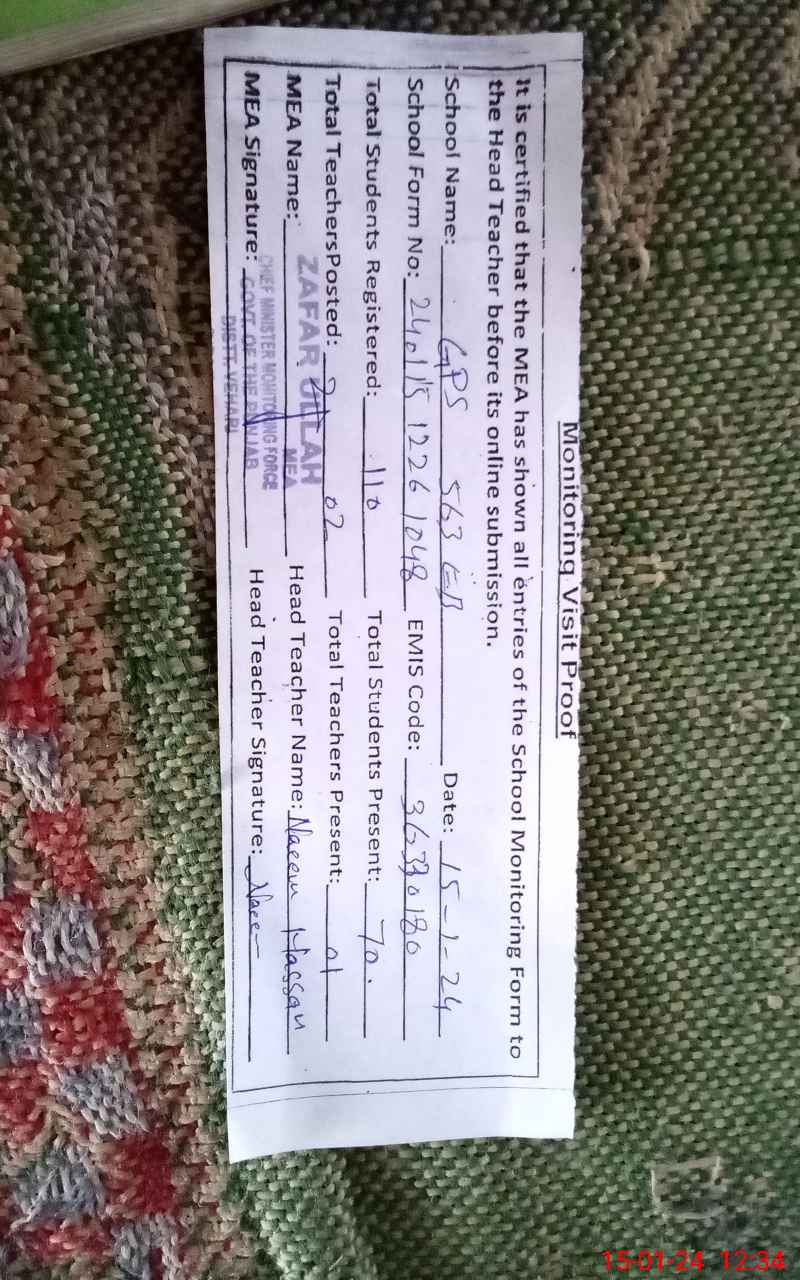 Monitoring Visit Proof
It is certified that the MEA has shown all entries of the School Monitoring Form to
the Head Teacher before its online submission.
School Name: GPS 563 EB Date: 15-1-24
School Form No: 24011512261048 EMIS Code: 36330180
Total Students Registered: 110 Total Students Present: 70.
Total TeachersPosted: 02 Total Teachers Present: 01
MEA Name: ZAFAR ULLAH Head Teacher Name: Naeem Hassan
MEA
CHIEF MINISTER MONITORING FORCE
MEA Signature: GOVT. OF THE PUNJAB Head Teacher Signature:
DISTT. VEHARI
15-01-24 12:34